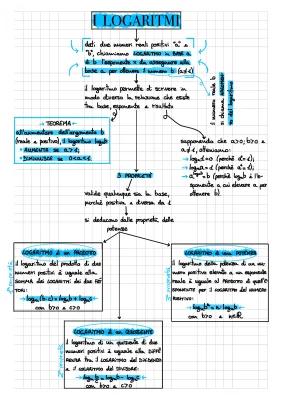 I LOGARITMI
dati due numeri reali positivi "a" e
"b", chiamiamo LOGARITMO in BASE a
di b l'esponente x da assegnare alla
base a, per ottenere il numero b (a≠1)
il numero reale b
si chiama
to del logaritmo
il logaritmo permette di scrivere in
modo diverso la relazione che esiste
tra base, esponente e risultato
TEOREMA
all'aumentare dell'argomento b
(reale e positivo), il logaritmo logₐb
• AUMENTA se a>1;
• DIMINUISCE se 0<a<1.
supponendo che a>0, b>0 e
a≠1, otteniamo:
→ logₐ1=0 (perché a⁰=1);
→ logₐa=1 (perché a¹=a);
→ = b (perché logₐb è l'e-
sponente a cui elevare a per
ottenere b).
3 PROPRIETÀ
valide qualunque sia la base,
purché positiva e diversa da 1
si deducono dalle proprietà delle
potenze
1ª proprietà
LOGARITMO di un PRODOTTO
il logaritmo del prodotto di due
numeri positivi è uguale alla
SOMMA dei LOGARITMI dei due FAT-
TORI:
logₐ(b·c) = logₐb + logₐc
con b>0 e c>0
LOGARITMO di una POTENZA
il logaritmo della potenza di un nu-
mero positivo elevato a un esponente
reale è uguale al PRODOTTO di quell'
ESPONENTE per il LOGARITMO del NUMERO
POSITIVO:
logₐbⁿ = n·logₐb
con b>0 e n∈R.
2ª proprietà
LOGARITMO di un QUOZIENTE
il logaritmo di un quoziente di due
numeri positivi è uguale alla DIFFE-
RENZA tra il LOGARITMO del DIVIDENDO
e il LOGARITMO del DIVISORE:
logₐ b/c = logₐb - logₐc
con b>0 e c>0